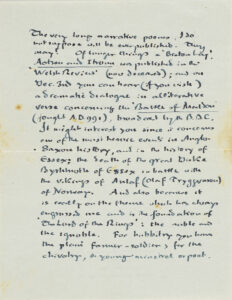 The very long narrative poems, I do
not suppose will be ever published. They
may! Of longer things a 'Breton Lay'
Aotrou and Itroun was published in the
Welsh Review (now deceased); and on
Dec. 3rd you can hear (if you wish)
a dramatic dialogue in alliterative
verse concerning the Battle of Maldon
(fought A.D. 991), broadcast by B.B.C.
It might interest you since it concerns
one of the most heroic events in Anglo-
Saxon history, and in the history of
Essex: the death of the great Duke
Byrhtnoth of Essex in battle with
the vikings of Anlaf (Olaf Tryggvason)
of Norway. And also because it
is really on the theme which has always
engrossed me and is the foundation of
The Lord of the Rings: the noble and
the ignoble. For hobbitry you have
the plain farmer-soldiers; for the
chivalry, a young minstrel or poet.